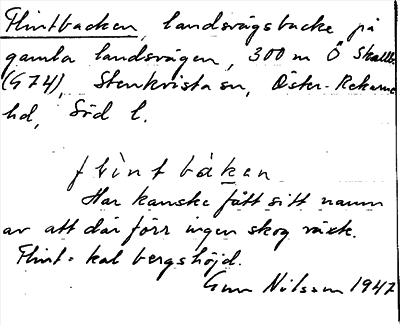 Flintbacken, landsvägsbacke på
gamla landsvägen, 300 m Ö Skalle
(G74), Stenkvista sn, Öster-Rekarne
hd, Söd l.
flint bàken
Har kanske fått sitt namn
av att där förr ingen skog växte.
Flint = kal bergshöjd.
Gun Nilsson 1947